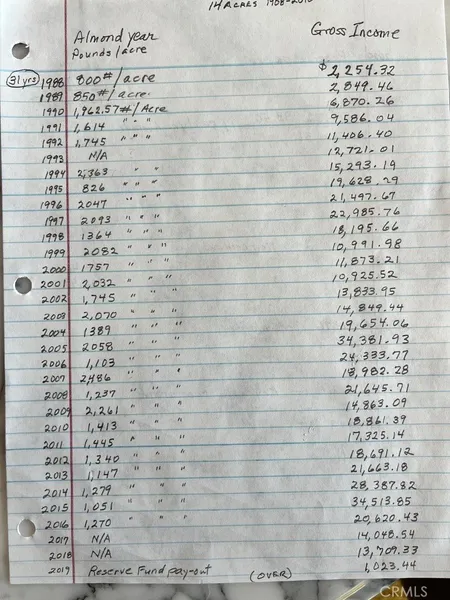 14 ACRES 1988-2018
Almond year Gross Income
Pounds/acre
31 yrs 1988 800#/acre $2,254.32
1989 850#/acre 2,849.46
1990 1,962.57#/Acre 6,870.26
1991 1,614 " " " 9,586.04
1992 1,745 " " " 11,406.40
1993 N/A 12,721.01
1994 2,363 " " 15,293.19
1995 826 " " " 19,628.29
1996 2047 " " " 21,497.67
1997 2093 " " " 22,985.76
1998 1364 " " " 18,195.66
1999 2082 " " " 10,991.98
2000 1757 " " " 11,873.21
2001 2,032 " " " 10,925.52
2002 1,745 " " " 13,833.95
2003 2,070 " " " 14,849.44
2004 1389 " " " 19,654.06
2005 2058 " " " 34,381.93
2006 1,103 " " " 24,333.77
2007 2486 " " " 18,982.28
2008 1,237 " " " 21,645.71
2009 2,261 " " " 14,863.09
2010 1,413 " " " 18,861.39
2011 1,445 " " " 17,325.14
2012 1,340 " " " 18,691.12
2013 1,147 " " " 21,663.18
2014 1,279 " " " 28,387.82
2015 1,051 " " " 34,513.85
2016 1,270 " " " 20,620.43
2017 N/A 14,048.54
2018 N/A 13,709.33
2019 Reserve Fund pay-out (OVER) 1,023.44
CRMLS